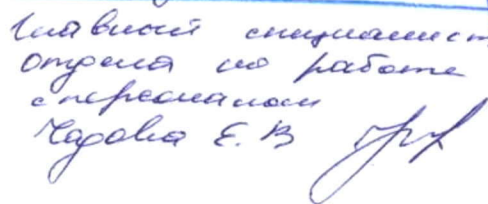 Главный специалист
отдела по работе
с персоналом
Чадова Е.В